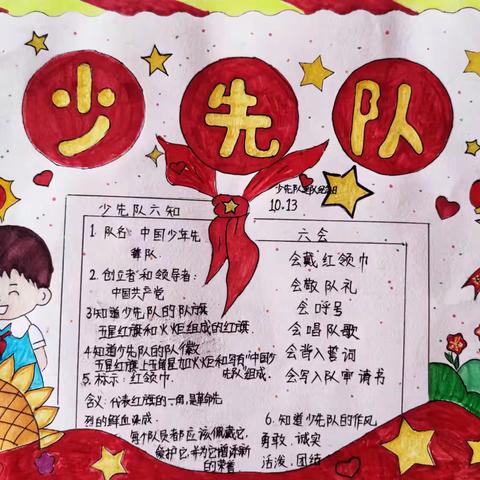 少先队
少先队建队纪念日
10.13
少先队六知
1. 队名：中国少年先
锋队
2. 创立者和领导者：
中国共产党
3知道少先队的队旗
五星红旗和火炬组成的红旗.
4知道少先队的队徽
五星红旗上五角星加火炬和写有"中国少
先队"组成.
5. 标示：红领巾.
含义：代表红旗的一角，是革命先
烈的鲜血染成.
每个队员都应该佩戴它，
爱护它，并为它增添新
的荣誉.
6. 知道少先队的作风
勇敢、诚实
活泼、团结
六会
会戴红领巾
会敬队礼
会呼号
会唱队歌
会背入誓词
会写入队审请书